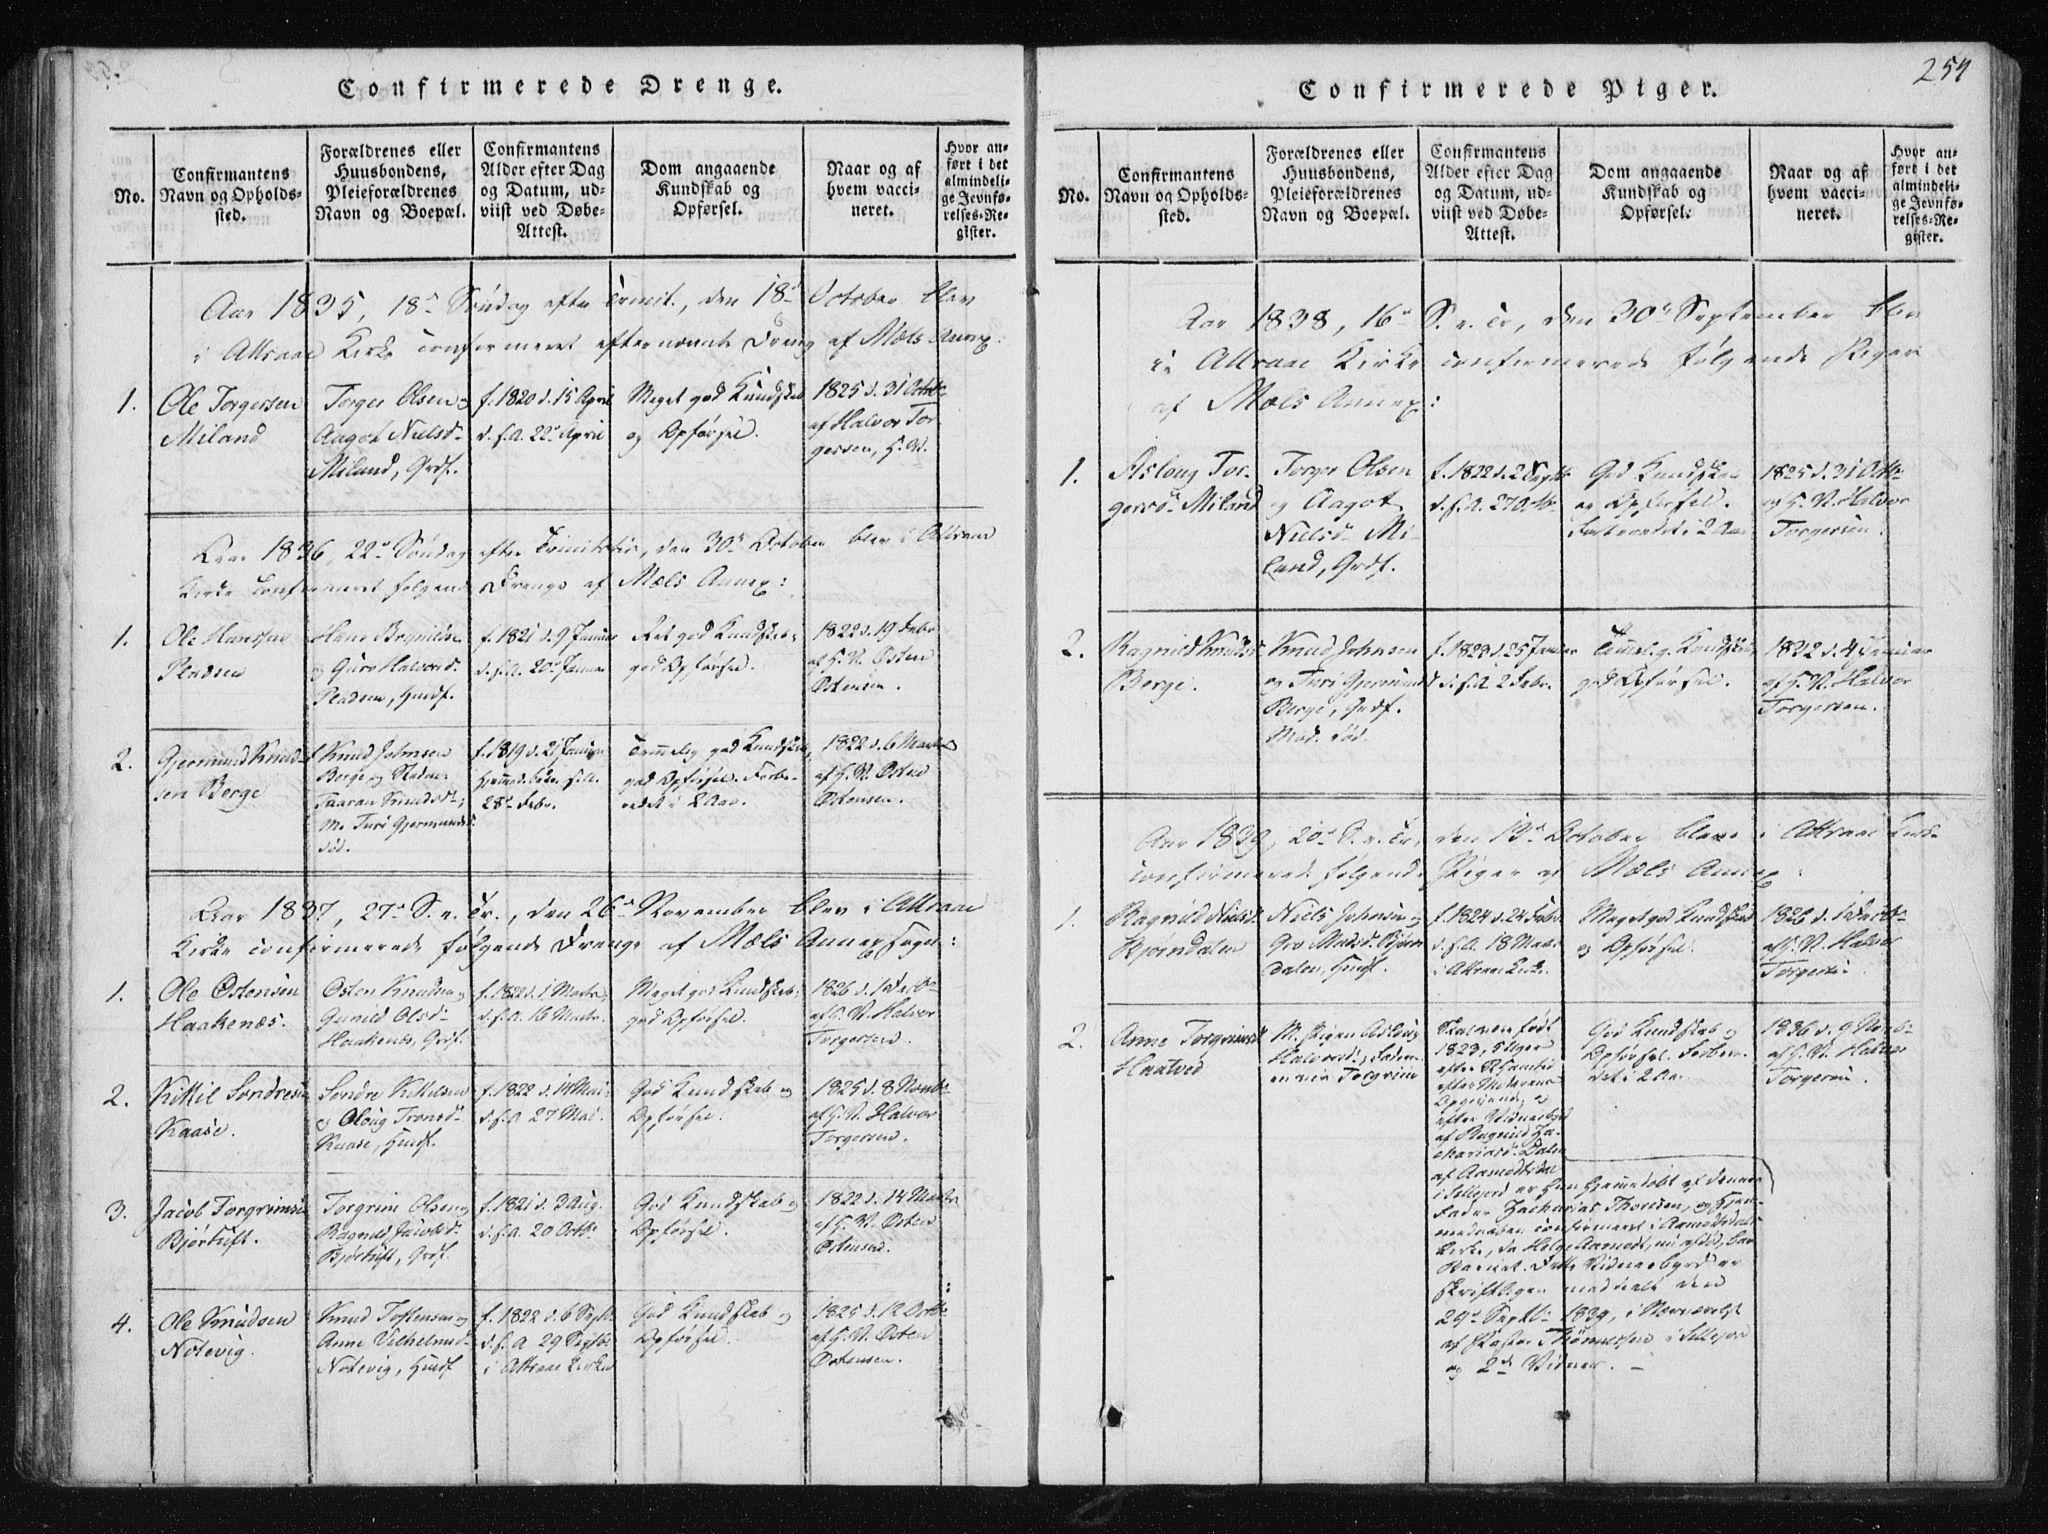 254
Confirmerede Drenge.
No.
Confirmantens
Navn og Opholds-
sted.
Forældrenes eller
Huusbondens,
Pleieforældrenes
Navn og Boepæl.
Confirmantens
Alder efter Dag
og Datum, ud-
viist ved Døbe-
Attest.
Dom angaaende
Kundskab og
Opførsel.
Naar og af
hvem vacci-
neret.
Hvor an-
ført i det
almindeli-
ge Jevnfø-
relses-Re-
gister.
Aar 1835, 18d Søndag efter Trinit., den 18d October blev
i Attraae Kirke confirmeret efternævnte Dreng af Mæls Annex:
1.
Ole Torgersen
Miland
Torger Olsen og
Aagot Nielsd.
Miland, Grdf.
f. 1820 d. 15 April
d. s. A. 22d April
Meget god Kundskab
og Opførsel.
1825 d. 31 Octb.
af Halvor Tor
gersen, H. V.
Aar 1836, 22d Søndag efter Trinitatis, den 30d October blev i Attraae
Kirke confirmeret følgende Drenge af Mæls Annex:
1.
Ole Hansen
Pladsen
Hans Brynilds.
og Guro Halvorsd.
Pladsen, Huusf.
f. 1821 d. 9 Januar
d. s. A. 20d Januar
Ret god Kundskab,
god Opførsel.
1822 d. 19 Febr.
af H. V. Østen
Østensen.
2.
Gjermund Knud-
sen Berge
Knud Johnsen
Berge og
Taaran Knudsd.;
M. Turi Gjermundsd.
død.
f. 1819 d. 21 Januar
Hjemmed. s. A.
28d Febr.
Temmelig god Kundskab,
god Opførsel. Forbe-
redet i 2 Aar.
1822 d. 6 Marts
af H. V. Østen
Østensen.
Aar 1837, 27d S. e. Tr., den 26d November blev i Attraae
Kirke confirmerede følgende Drenge af Mæls Annexsogn:
1.
Ole Østensen
Haakenæs.
Østen Knudsen og
Gunild Olsd.
Haakenæs, Grdf.
f. 1822 d. 1 Marts,
d. s. A. 16 Marts.
Meget god Kundskab,
god Opførsel.
1826 d. 1
af H. V. Halvor
Torgersen.
2.
Kittil Sondresen
Kaase.
Sondre Kittelsen
og Oloug Tronsd.
Kaase, Huusf.
f. 1822 d. 14 Mai,
d. s. A. 27 Mai.
God Kundskab og
Opførsel.
1825 d. 8 Novb.
af H. V. Halvor
Torgersen.
3.
Jacob Torgrimsen
Bjørtuft.
Torgrim Olsen og
Ragnild Jacobsd.
Bjørtuft, Grdf.
f. 1821 d. 3 Aug.
d. s. A. 20 Octb.
God Kundskab og
Opførsel.
1822 d. 14 Marts
af H. V. Østen
Østensen.
4.
Ole Knudsen
Notevig.
Knud Tostensen og
Anne Vilhelmsd.
Notevig, Huusf.
f. 1822 d. 6 Septb.
d. s. A. 29 Septb.
i Attraae Kirke
God Kundskab og
Opførsel.
1825 d. 12 Octb.
af H. V. Østen
Østensen.
Confirmerede Piger.
No.
Confirmantens
Navn og Opholds-
sted.
Forældrenes eller
Huusbondens,
Pleieforældrenes
Navn og Boepæl.
Confirmantens
Alder efter Dag
og Datum, ud-
viist ved Døbe-
Attest.
Dom angaaende
Kundskab og
Opførsel.
Naar og af
hvem vacci-
neret.
Hvor an-
ført i det
almindeli-
ge Jevnfø-
relses-Re-
gister.
Aar 1838, 16d S. e. Tr, den 30d September blev
i Attraae Kirke confirmerede følgende Piger
af Mæls Annex:
1.
Aslong Tor-
gersd. Miland
Torger Olsen
og Aagot
Nielsd. Mi-
land, Grdf.
f. 1822 d. 2 Septb.
d. s. A. 27 Octb.
God Kundskab
og Opførsel.
Forberedet i 2 Aar
1825 d. 31 Octb.
af H. V. Halvor
Torgersen.
2.
Ragnild Knudsd.
Berge.
Knud Johnsen
og Turi Gjermundsd.
Berge, Grdf.
Mod. død.
f. 1823 d. 25 Januar
d. s. A. 2 Febr.
Temmel. g. Kundskab,
god Opførsel.
1832 d. 4 Januar
af H. V. Halvor
Torgersen.
Aar 1839, 20d S. e. Tr, den 13d October bleve i Attraae Kirke
confirmerede følgende Piger af Mæls Annex:
1.
Ragnild Nielsd.
Bjørndalen
Niels Johnsen og
Gro Madsd. Bjørn
dalen, Huusf.
f. 1824 d. 24 Febr.
d. s. A. 18 Marts
i Attraae Kirke.
Meget god Kundskab
og Opførsel.
1826 d. 1
af H. V. Halvor
Torgersen.
2.
Anne Torgrimsd.
Haatved
M. Pigen Aslaug
Halvorsd.; Faderen
Torgrim
Skal være født
1823, 5 Uger
efter
efter Moderens
Opgivende, og
efter Vidnesbyrd
af Ragnild Za-
chariasd. Dalen
af Aamotsdal
i Sillejord er hun hjemmedøbt af dennes
Fader Zacharias Thorsen, og Hjem-
medaaben confirmeret i Aamotsdals
Kirke, da Helge Aamodt, nu afdød, bar
Barnet. Dette Vidnesbyrd er
skriftligen meddeelt den
29d Septb. 1839, i Nærværelse
af Pastor Thønnessen i Sillejord
og 2de Vidner. —
God Kundskab og
Opførsel. Forbere-
det i 2 Aar.
1836 d. 9 Novb.
af H. V. Halvor
Torgersen.